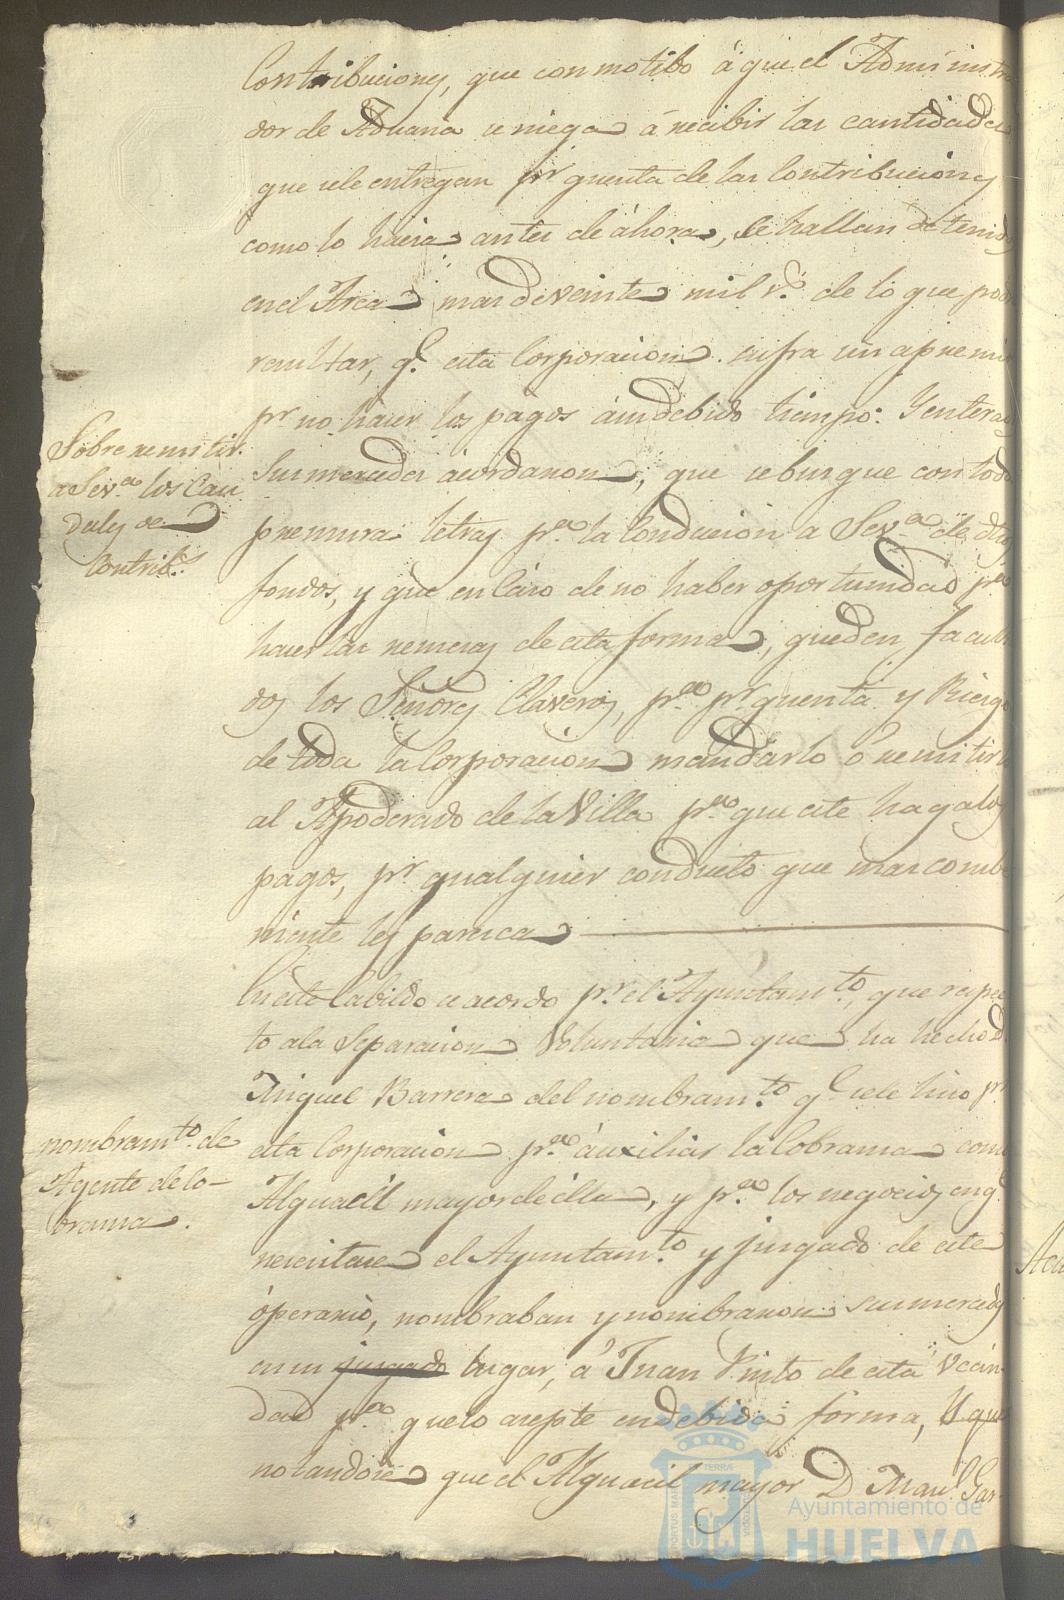 Contribuciones, que con motibo á que el Administra
dor de Aduana se niega á recibir las cantidades
que sele entregan pr quenta de las Contribuciones
como lo hacia antes de áhora, se hallan detenidos
en el Arca mas de veinte mil rs. de lo que podrá
resultar, q.e esta Corporacion sufra un apremio
pr no hacer los pagos á su debido tiempo: Y enterados
Sus mercedes ácordaron, que se busque con toda
Sobre remitir
a Sev.a los Cau
dales de
Contrib.s
premura letras pr.a la Conducion a Sev.a de dhos
fondos, y que en Caso de no haber oportunidad pr.a
hacer las remesas de esta forma, queden faculta
dos los Señores Claveros, pr.a pr quenta y Riesgo
de toda la Corporacion mandarlo ó remitirlo
al Apoderado de la Villa pr.a que este haga los
pagos, pr qualquier conducto que mas combe
niente les paresca
En este Cabildo se acordo pr el Ayuntam.to, que respec
to ala Separacion Voluntaria que ha hecho D.
Miguel Barrera del nombram.to q.e sele hiso pr
nombram.to de
Agente de Co-
bransa.
esta Corporacion pr.a áuxiliar la Cobransa como
Alguacil mayor de ella, y pr.a los negocios en q.e
nesesitase el Ayuntam.to y jusgado de este
óperario, nombraban y nombraron sus mercedes
en su jusgado lugar, á Juan Pinto de esta vecin
dad pr.a que lo asepte en debida forma, Y que
notandose que el Alguacil mayor D. Man.l Gar-
Acu
Ayuntamiento de
HUELVA